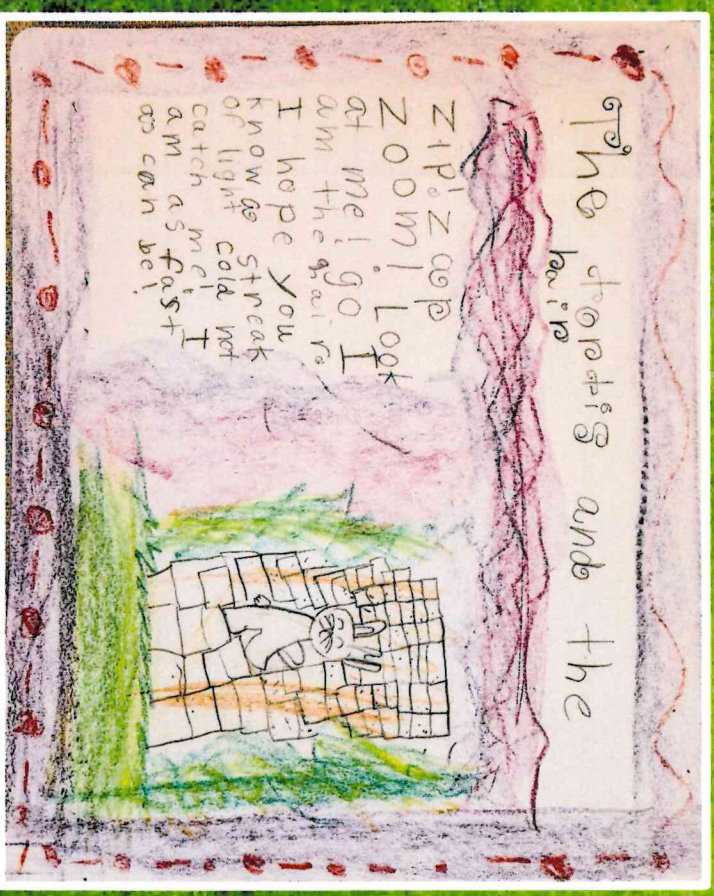 The tortig and the
hair
Zip! Zap
Zoom! Look
at me! go I
am the hair.
I hope you
know a streak
of light cold not
catch me! I
am as fast
as can be!